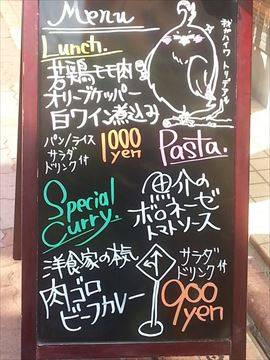 Menu
Lunch.
若鶏モモ肉
オリーブケッパー
白ワイン煮込み
パン/ライス
サラダ
ドリンク付
1000
yen
Pasta.
魚介の
ボロネーゼ
トマトソース
Special
Curry.
洋食家の
肉ゴロ
ビーフカレー
サラダ
ドリンク付
900
yen